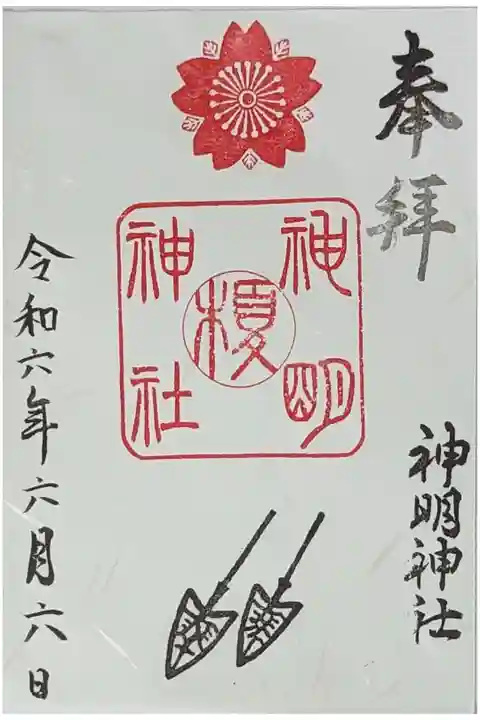 奉拝
神明神社
神明
榎
神社
令和六年六月六日